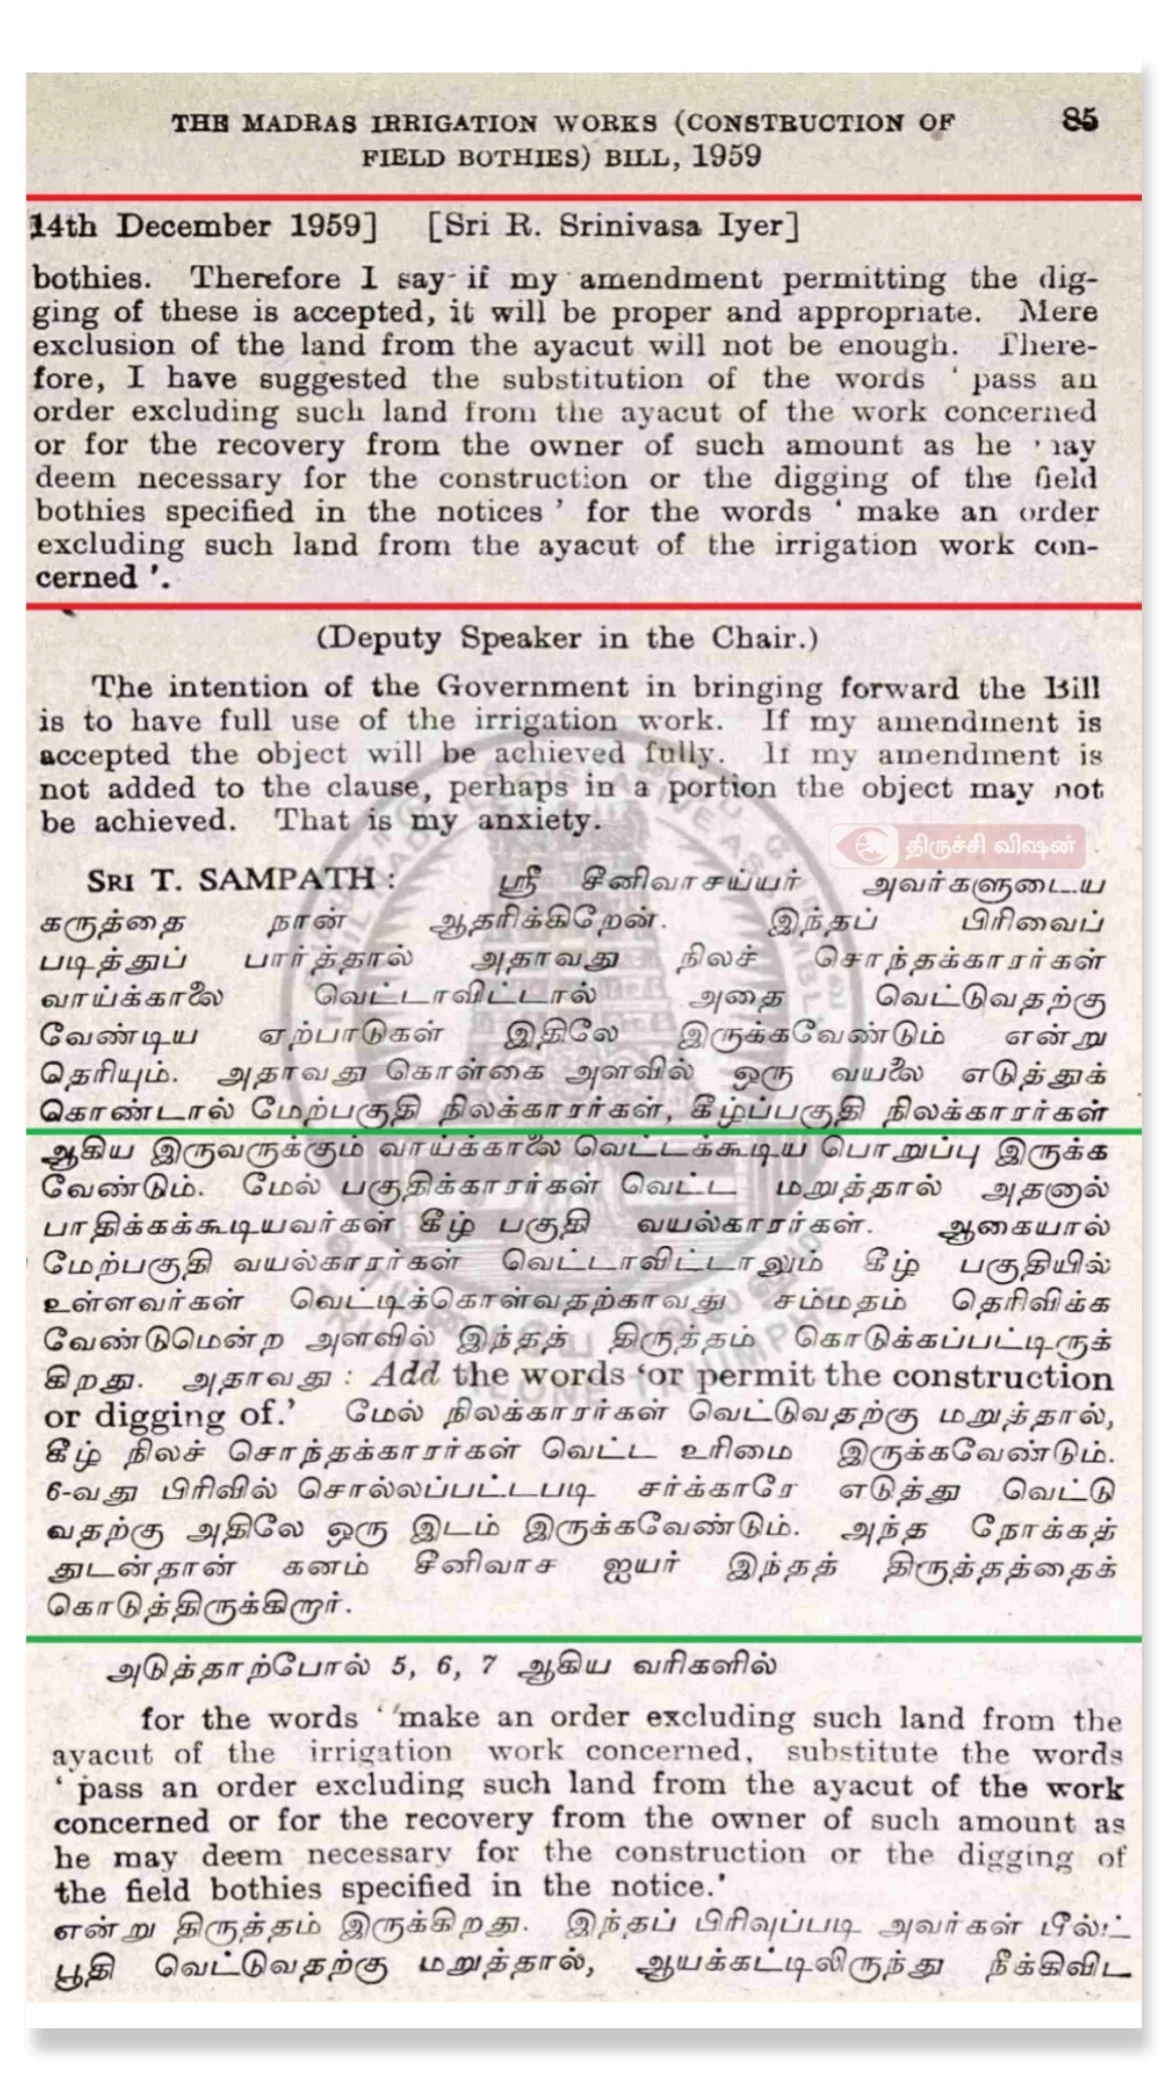 THE MADRAS IRRIGATION WORKS (CONSTRUCTION OF 85
FIELD BOTHIES) BILL, 1959
14th December 1959] [Sri R. Srinivasa Iyer]
bothies. Therefore I say if my amendment permitting the dig-
ging of these is accepted, it will be proper and appropriate. Mere
exclusion of the land from the ayacut will not be enough. There-
fore, I have suggested the substitution of the words ‘ pass an
order excluding such land from the ayacut of the work concerned
or for the recovery from the owner of such amount as he may
deem necessary for the construction or the digging of the field
bothies specified in the notices ’ for the words ‘ make an order
excluding such land from the ayacut of the irrigation work con-
cerned ’.
(Deputy Speaker in the Chair.)
The intention of the Government in bringing forward the Bill
is to have full use of the irrigation work. If my amendment is
accepted the object will be achieved fully. If my amendment is
not added to the clause, perhaps in a portion the object may not
be achieved. That is my anxiety.
திருச்சி விஷன்
SRI T. SAMPATH : ஸ்ரீ சீனிவாசய்யர் அவர்களுடைய
கருத்தை நான் ஆதரிக்கிறேன். இந்தப் பிரிவைப்
படித்துப் பார்த்தால் அதாவது நிலச் சொந்தக்காரர்கள்
வாய்க்காலை வெட்டாவிட்டால் அதை வெட்டுவதற்கு
வேண்டிய ஏற்பாடுகள் இதிலே இருக்கவேண்டும் என்று
தெரியும். அதாவது கொள்கை அளவில் ஒரு வயலை எடுத்துக்
கொண்டால் மேற்பகுதி நிலக்காரர்கள், கீழ்ப்பகுதி நிலக்காரர்கள்
ஆகிய இருவருக்கும் வாய்க்காலை வெட்டக்கூடிய பொறுப்பு இருக்க
வேண்டும். மேல் பகுதிக்காரர்கள் வெட்ட மறுத்தால் அதனால்
பாதிக்கக்கூடியவர்கள் கீழ் பகுதி வயல்காரர்கள். ஆகையால்
மேற்பகுதி வயல்காரர்கள் வெட்டாவிட்டாலும் கீழ் பகுதியில்
உள்ளவர்கள் வெட்டிக்கொள்வதற்காவது சம்மதம் தெரிவிக்க
வேண்டுமென்ற அளவில் இந்தத் திருத்தம் கொடுக்கப்பட்டிருக்
கிறது. அதாவது : Add the words ‘or permit the construction
or digging of.’ மேல் நிலக்காரர்கள் வெட்டுவதற்கு மறுத்தால்,
கீழ் நிலச் சொந்தக்காரர்கள் வெட்ட உரிமை இருக்கவேண்டும்.
6-வது பிரிவில் சொல்லப்பட்டபடி சர்க்காரே எடுத்து வெட்டு
வதற்கு அதிலே ஒரு இடம் இருக்கவேண்டும். அந்த நோக்கத்
துடன்தான் கனம் சீனிவாச ஐயர் இந்தத் திருத்தத்தைக்
கொடுத்திருக்கிறார்.
அடுத்தாற்போல் 5, 6, 7 ஆகிய வரிகளில்
for the words ‘‘make an order excluding such land from the
ayacut of the irrigation work concerned, substitute the words
‘ pass an order excluding such land from the ayacut of the work
concerned or for the recovery from the owner of such amount as
he may deem necessary for the construction or the digging of
the field bothies specified in the notice.’
என்று திருத்தம் இருக்கிறது. இந்தப் பிரிவுப்படி அவர்கள் பீல்ட்
பூதி வெட்டுவதற்கு மறுத்தால், ஆயக்கட்டிலிருந்து நீக்கிவிட